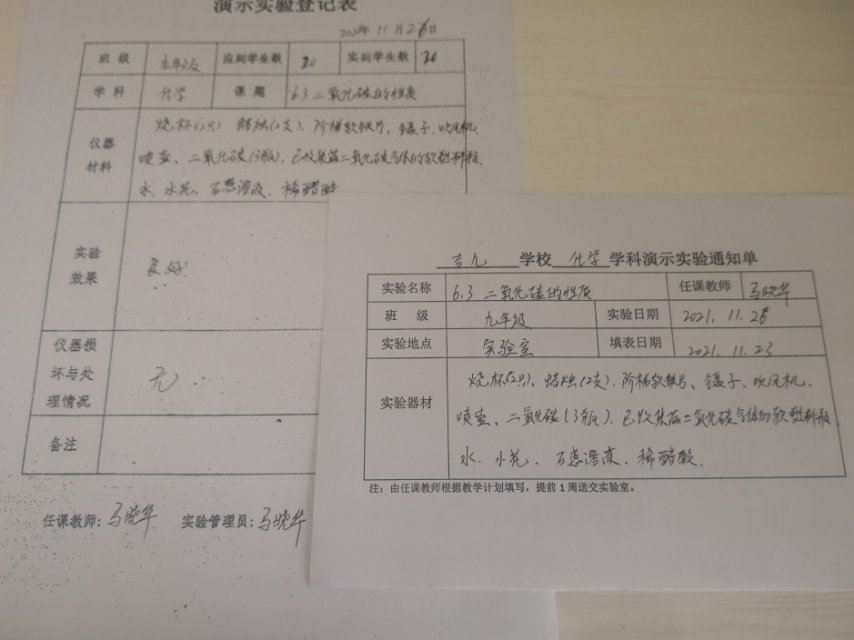 演示实验登记表
2021年 11月26日
班 级 九年级 应到学生数 30 实到学生数 30
学 科 化学 课 题 6.3 二氧化碳的性质
仪器材料 烧杯(2只) 蜡烛(2支)、阶梯软铁片、镊子、吹风机、
喷壶、二氧化碳(3瓶)、已收集满二氧化碳气体的软塑料瓶
水、小花、石蕊溶液、稀醋酸
实验效果 良好
仪器损坏与处理情况 无
备注
任课教师: 马晓华 实验管理员: 马晓华
吉九 学校 化学 学科演示实验通知单
实验名称 6.3 二氧化碳的性质 任课教师 马晓华
班 级 九年级 实验日期 2021. 11. 26
实验地点 实验室 填表日期 2021. 11. 23
实验器材 烧杯(2只)、蜡烛(2支)、阶梯软铁片、镊子、吹风机、
喷壶、二氧化碳(3瓶)、已收集满二氧化碳气体的软塑料瓶
水、小花、石蕊溶液、稀醋酸、
注：由任课教师根据教学计划填写，提前1周送交实验室。